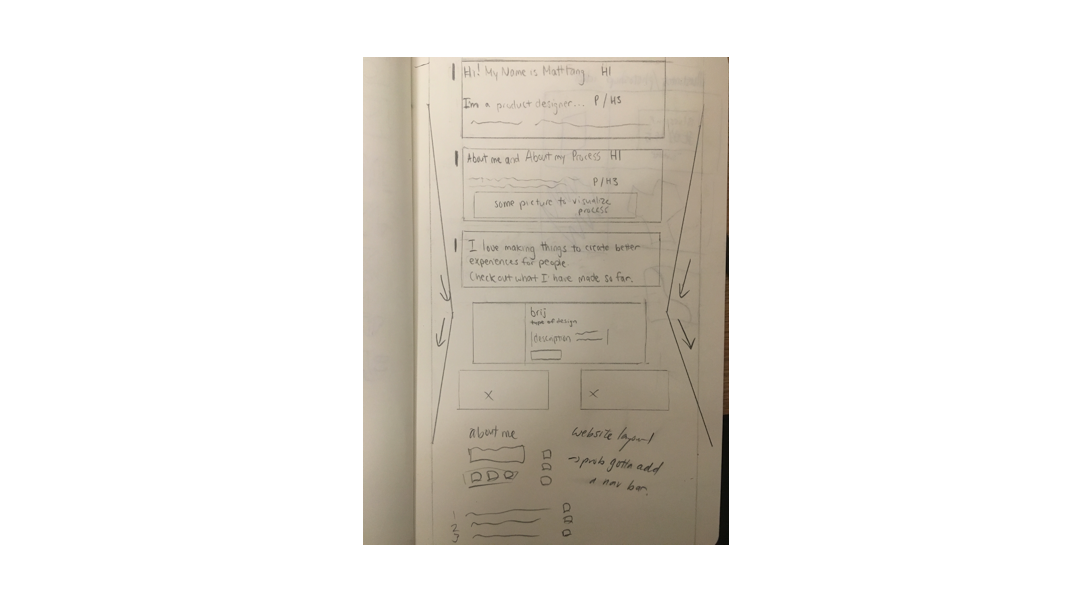 Hi! My Name is Matt Fang H1
I'm a product designer... P / H3
About me and About my Process H1
P / H3
some picture to visualize
process
I love making things to create better
experiences for people.
Check out what I have made so far.
brij
type of design
description
x
x
About me
website layout
→ prob gotta add
a nav bar.
1
2
3